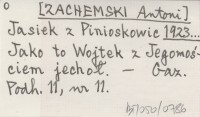 o [ZACHEMSKI Antoni]
Jasiek z Pinioskowic 1923...
Jako to Wojtek z Jegomoś-
ciem jechoł. — Gaz.
Podh. 11, nr 11.